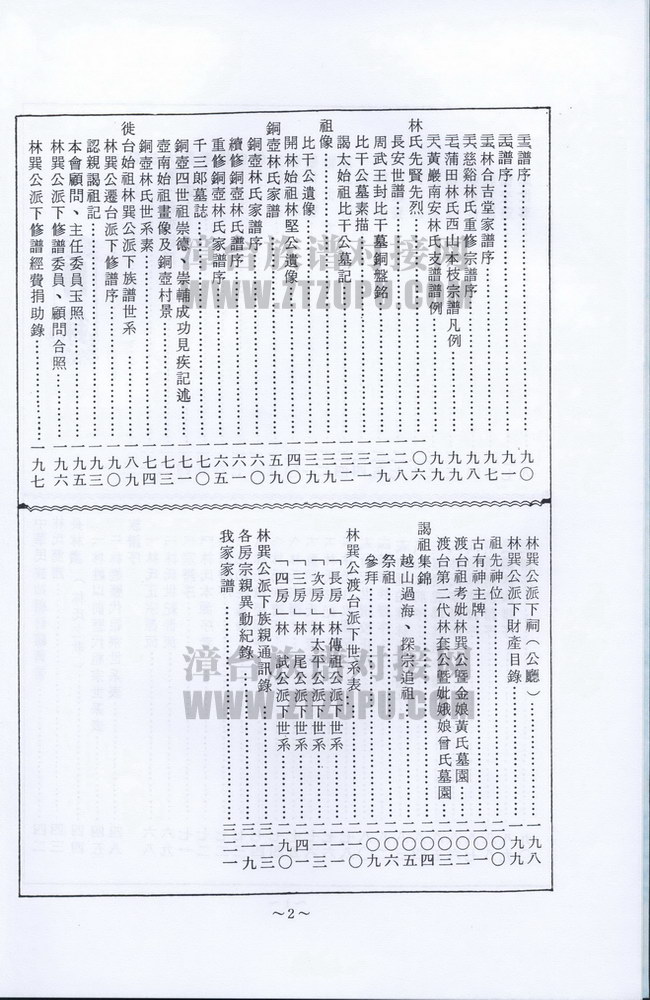 譜序……九○
譜序……九一
林合吉堂家譜序……九七
慈谿林氏重修宗譜序……九八
莆田林氏西山本枝宗譜凡例……九九
黃巖南安林氏支譜譜例……九九
林氏先賢先烈……一○六
長安世譜……一二八
周武王封比干墓銅盤銘……一二九
比干公墓素描……一三一
謁太始祖比干公墓記……一三二
祖像……一三九
比干公遺像……一三九
開林始祖林堅公遺像……一四○
銅壺林氏家譜……一五九
銅壺林氏家譜序……一六○
續修銅壺林氏譜序……一六一
重修銅壺林氏家譜序……一六五
千三郎墓誌……一七○
銅壺四世祖崇德、崇輔成功見疾記述……一七一
壺南始祖畫像及銅壺村景……一七三
銅壺林氏世系素……一七四
徙台始祖林巽公派下族譜世系……一八九
林巽公遷台派下修譜序……一九○
認親謁祖記……一九三
本會顧問、主任委員玉照……一九五
林巽公派下修譜委員、顧問合照……一九六
林巽公派下修譜經費捐助錄……一九七
林巽公派下祠（公廳）……一九八
林巽公派下財產目錄……一九九
祖先神位……二○○
古有神主牌……二○一
渡台祖考妣林巽公暨金娘黃氏墓園……二○二
渡台第二代林套公暨妣娥娘曾氏墓園……二○三
謁祖集錦……二○四
越山過海、探宗追祖……二○五
祭祖……二○六
參拜……二○九
林巽公渡台派下世系表……二一○
「長房」林傳祖公派下世系……二一一
「次房」林太平公派下世系……二一三
「三房」林 尾公派下世系……二四一
「四房」林 武公派下世系……二九○
林巽公派下族親通訊錄……三一三
各房宗親異動紀錄……三一九
我家家譜……三二一
～2～
漳台族谱对接网
WWW.ZTZUPU.COM
漳台族谱对接网
WWW.ZTZUPU.COM